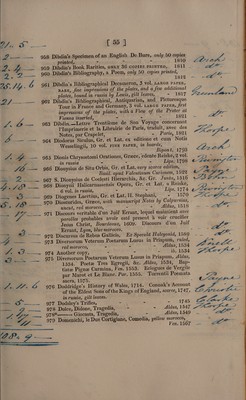 [ 55 ]
958 Dibdin's Specimen of an English De Bure, only 50 copies
printed, 1810
959 Dibdin's Book Rarities, ONLY 36 COPIES PRINTED, 1811
960 Dibdin's Bibliography, a Poem, only 50 copies printed,
1812
961 Dibdin's Bibliographical Decameron, 3 vol. LARGE PAPER,
RARE, fine impressions of the plates, and a few additional
plates, bound in russia by Lewis, gilt leaves, 1817
962 Dibdin's Bibliographical, Antiquarian, and Picturesque
Tour in France and Germany, 3 vol. LARGE PAPER, fine
impressions of the plates, with a View of the Prater in
Vienna inserted, 1821
963 Dibdin.—Lettre Trentième de Son Voyage concernant
l'Imprimerie et la Librairie de Paris, traduit, avec des
Notes, par Crapelet, Paris, 1821
964 Diodorus Siculus, Gr. et Lat. ex editione et cum Notis
Wesselingii, 10 vol. FINE PAPER, in boards,
Biponti, 1793
965 Dionis Chrysostomi Orationes, Græce, edente Reiske, 2 vol.
in russia Lips. 1798
966 Dionysius de Situ Orbis, Gr. et Lat. very scarce edition,
Venit. apud Valentinum Curionem, 1522
967 S. Dionysius de Cœlesti Hierarchia, &c. Gr. Junta, 1516
968 Dionysii Halicarnassensis Opera, Gr. et Lat. a Reiske,
6 vol. in russia, Lips. 1774
969 Diogenes Laertius, Gr. et Lat. H. Stephani, 1570
970 Dioscorides, Græce, with manuscript Notes by Calpurnius,
uncut, red morocco, Aldus, 1518
971 Discours veritable d'un Juif Errant, lequel maintient avec
parolles probables avoir esté present à voir crucifier
Jesus Christ, Bourdeaux, 1608. Discours du Juif
Errant, Lyon, blue morocco,
972 Discursus de Rebus Gallicis, Ex Speculis Halopolil, 1589
973 Diversorum Veterum Poetarum Lusus in Priapum, ruled,
red morocco, Aldus, 1534
974 Another copy
975 Diversorum Poetarum Veterum Lusus in Priapum, Aldus,
1534. Poetæ Tres Egregii, &c. Aldus, 1534. Bap-
tism Figuæ Carmina, Par. 1535. Eclogues de Vergile
par Marot et Le Blanc. Par. 1555. Torrentii Poemata
sacra, 1575
976 Doddridge's History of Wales, 1714. Connak's Account
of the Eldest Sons of the Kings of England, scarce, 1747,
in russia, gilt leaves.
977 Dodsley's Trifles, 1745
978 Dolce, Didone, Tragedia, Aldus, 1547
978*—— Giocasta, Tragedia, Aldus, 1549
979 Domenichi, le Due Cortigiane, Comedia, yellow morocco,
Fior. 1567